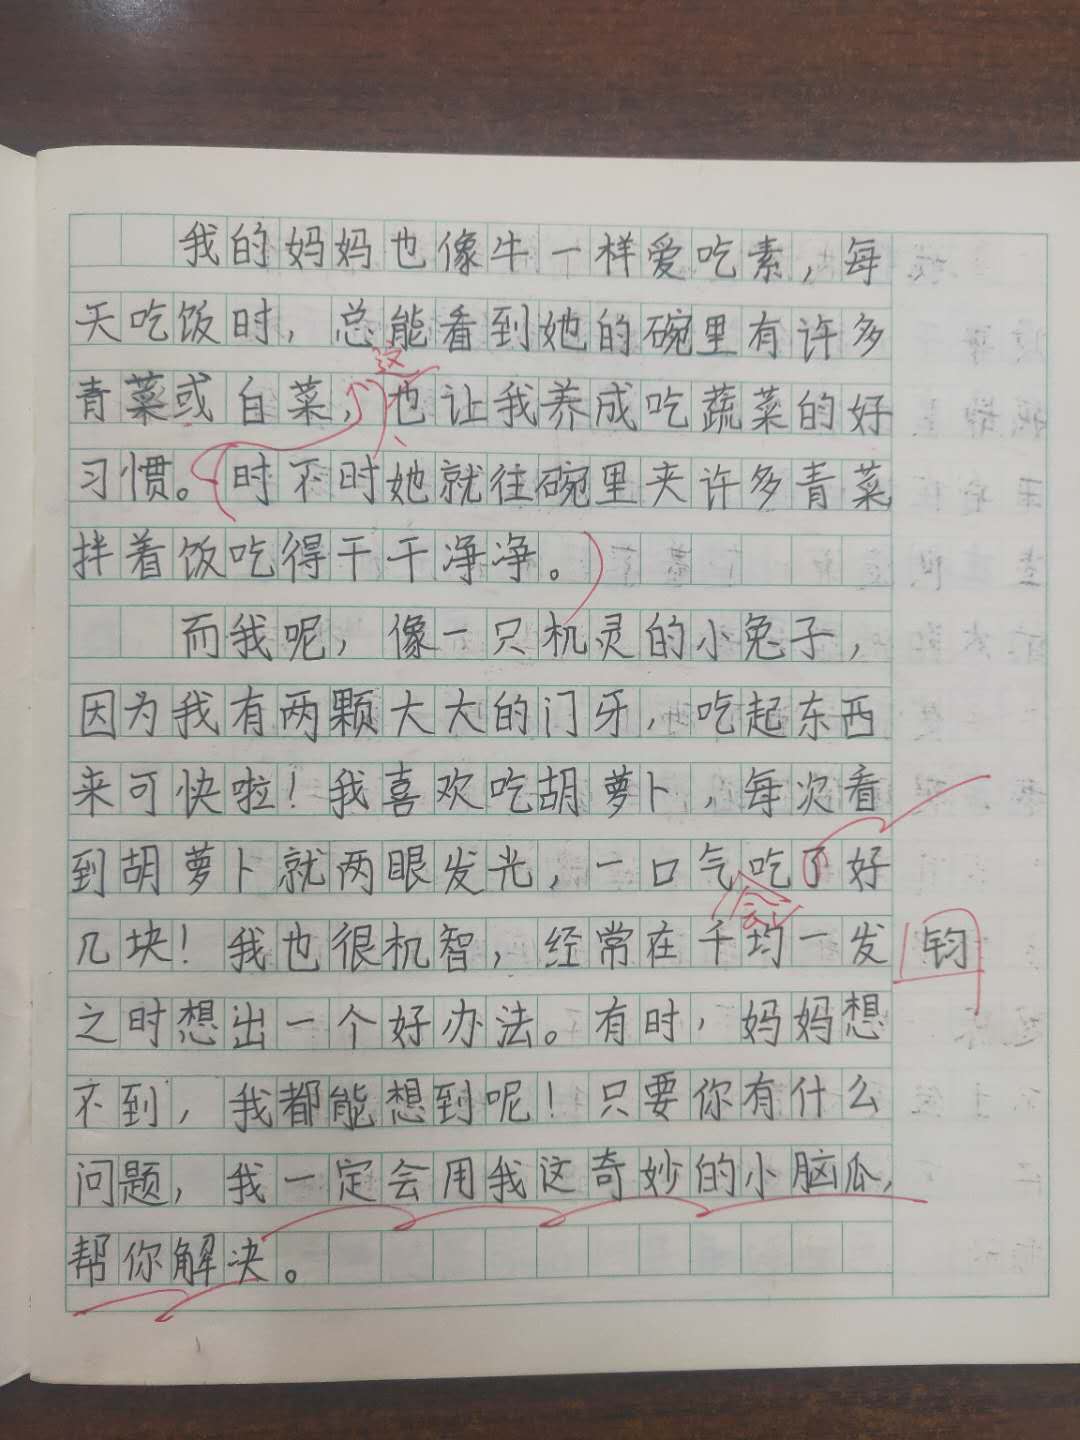 我的妈妈也像牛一样爱吃素，每
天吃饭时，总能看到她的碗里有许多
这
青菜或白菜，也让我养成吃蔬菜的好
习惯。时不时她就往碗里夹许多青菜
拌着饭吃得干干净净。
而我呢，像一只机灵的小兔子，
因为我有两颗大大的门牙，吃起东西
来可快啦！我喜欢吃胡萝卜，每次看
到胡萝卜就两眼发光，一口气吃了好
会
几块！我也很机智，经常在千均一发
钧
之时想出一个好办法。有时，妈妈想
不到，我都能想到呢！只要你有什么
问题，我一定会用我这奇妙的小脑瓜，
帮你解决。